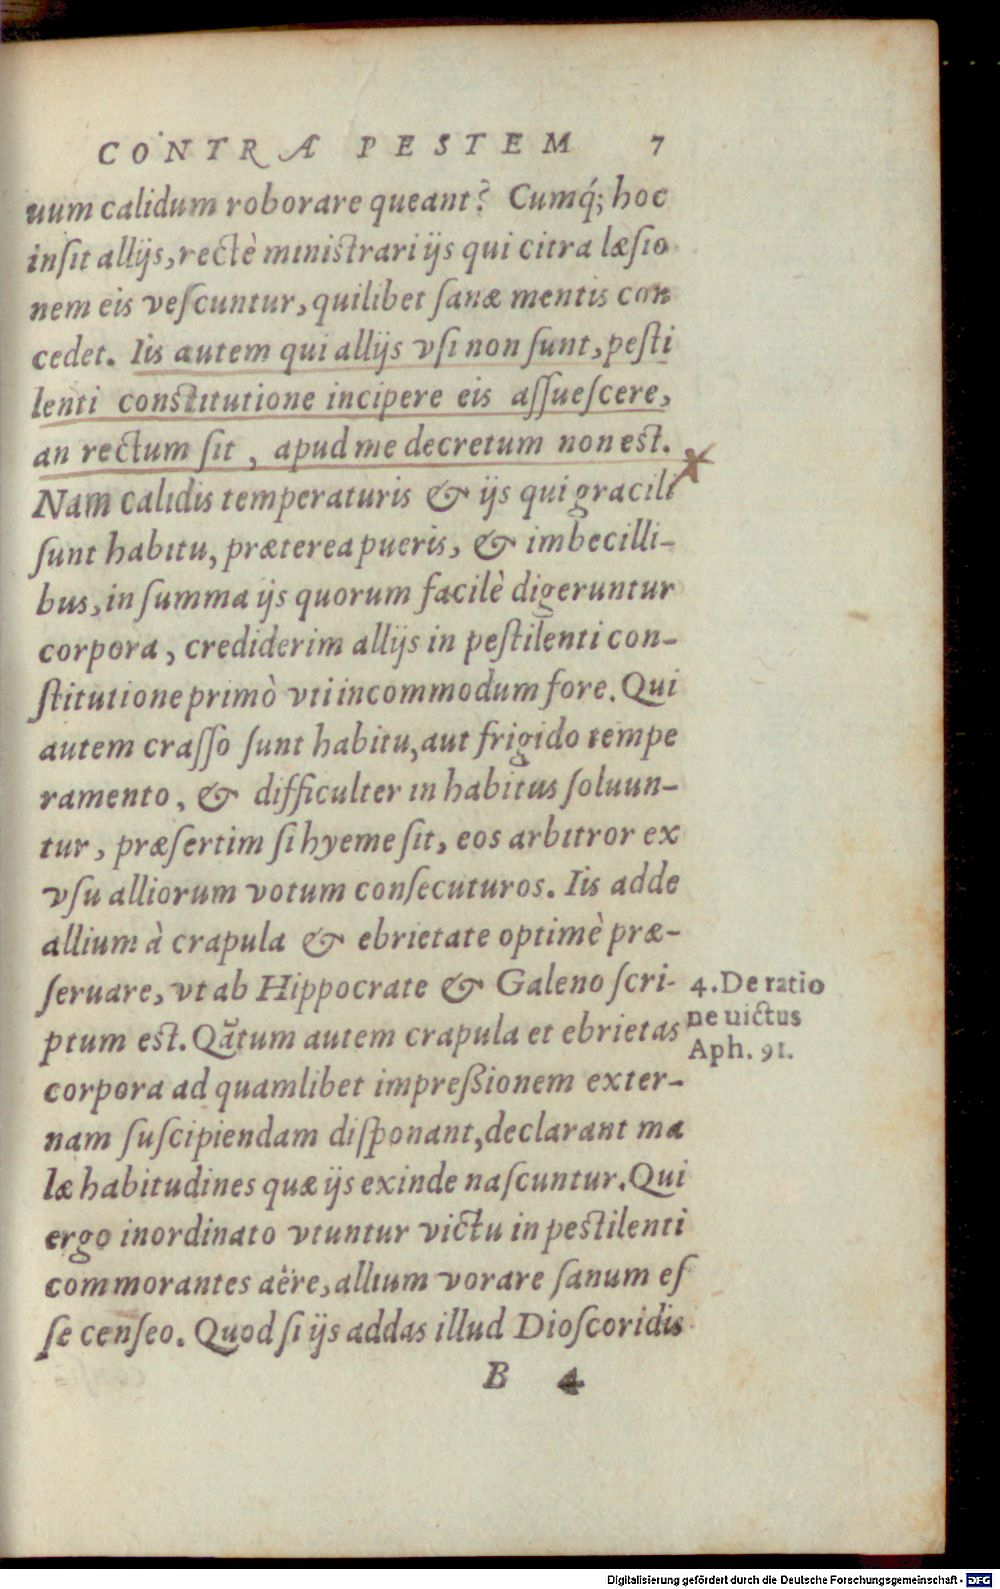 CONTRA PESTEM 7
uum calidum roborare queant? Cumq́; hoc
insit allijs, rectè ministrari ijs qui citra læsio
nem eis vescuntur, quilibet sanæ mentis con
cedet. Iis autem qui allijs vsi non sunt, pesti
lenti constitutione incipere eis assuescere,
an rectum sit, apud me decretum non est.
Nam calidis temperaturis & ijs qui gracili
sunt habitu, præterea pueris, & imbecilli-
bus, in summa ijs quorum facilè digeruntur
corpora, crediderim allijs in pestilenti con-
stitutione primò vti incommodum fore. Qui
autem crasso sunt habitu, aut frigido tempe
ramento, & difficulter in habitus soluun-
tur, præsertim si hyeme sit, eos arbitror ex
vsu alliorum votum consecuturos. Iis adde
allium à crapula & ebrietate optimè præ-
seruare, vt ab Hippocrate & Galeno scri-
ptum est. Quãtum autem crapula et ebrietas
corpora ad quamlibet impreßionem exter-
nam suscipiendam disponant, declarant ma
læ habitudines quæ ijs exinde nascuntur. Qui
ergo inordinato vtuntur victu in pestilenti
commorantes aëre, allium vorare sanum es
se censeo. Quod si ijs addas illud Dioscoridis
B 4
4. De ratio
ne uictus
Aph. 91.
Digitalisierung gefördert durch die Deutsche Forschungsgemeinschaft - DFG